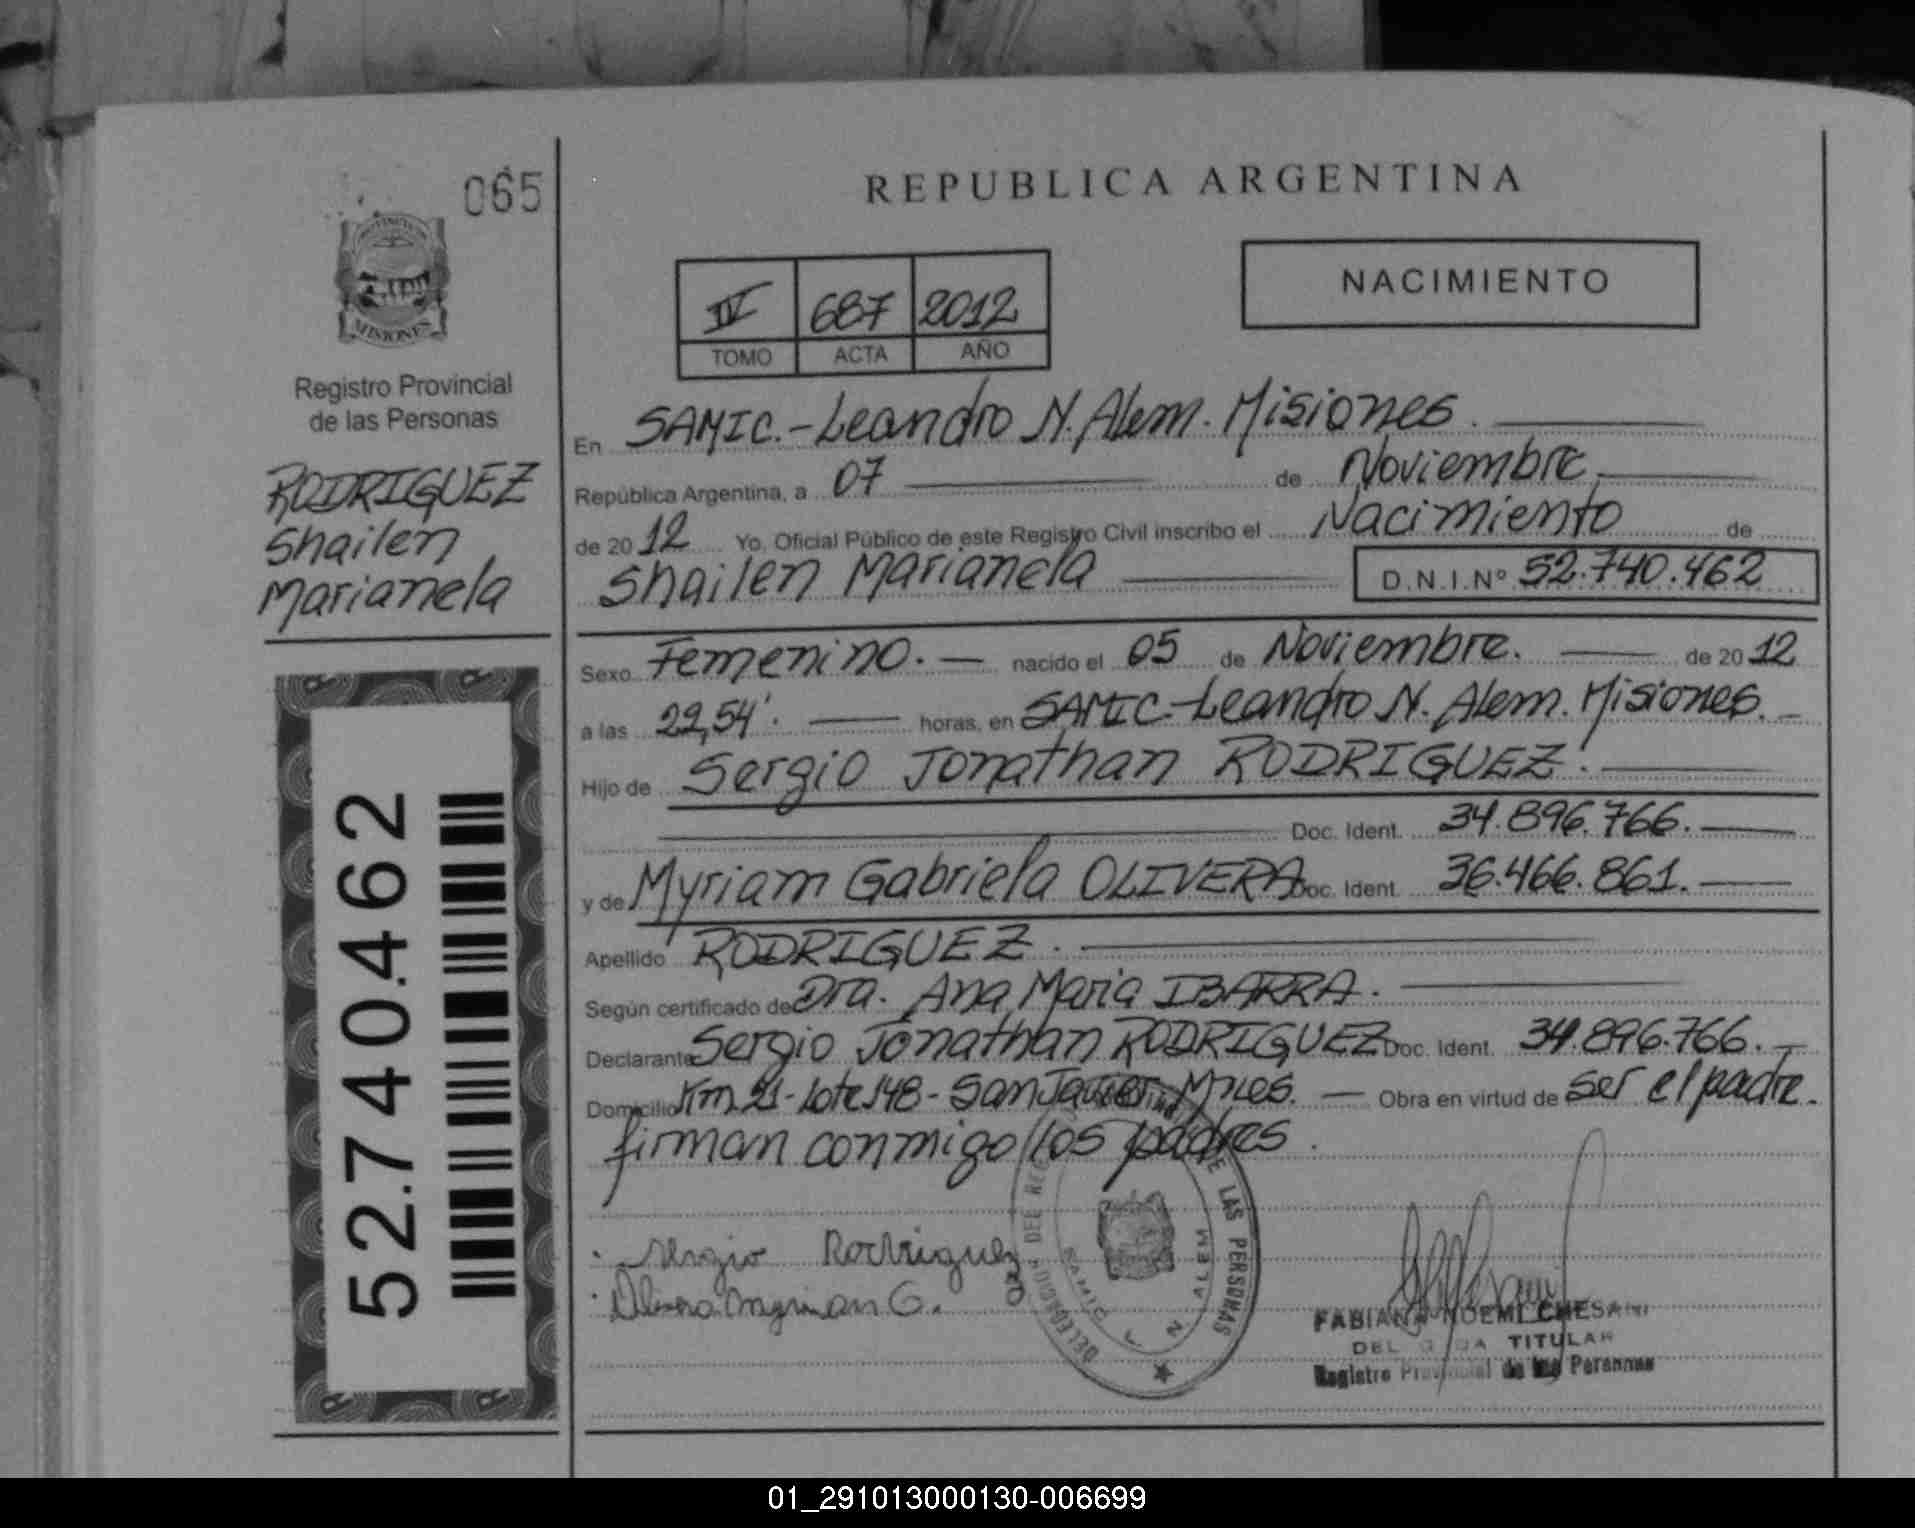 065
PROVINCIA DE
MISIONES
Registro Provincial
de las Personas
RODRIGUEZ
Shailen
Marianela
52.740.462
REPUBLICA ARGENTINA
NACIMIENTO
IV 687 2012
TOMO ACTA AÑO
En SAMIC.-Leandro N. Alem. Misiones.
República Argentina, a 07 de Noviembre.
de 2012 Yo, Oficial Público de este Registro Civil inscribo el Nacimiento de
Shailen Marianela D.N.I.Nº 52.740.462
Sexo Femenino. nacido el 05 de Noviembre. de 2012
a las 22,54'. horas, en SAMIC-Leandro N. Alem. Misiones.
Hijo de Sergio Jonathan RODRIGUEZ.
Doc. Ident. 34.896.766.
y de Myriam Gabriela OLIVERA Doc. Ident. 36.466.861.
Apellido RODRIGUEZ.
Según certificado de Dra. Ana Maria IBARRA.
Declarante Sergio Jonathan RODRIGUEZ Doc. Ident. 34.896.766.
Domicilio Km 21-Lote 148-San Javier Mnes. Obra en virtud de ser el padre.
firman conmigo los padres.
Sergio Rodriguez
Olivera Myrian G.
DE LAS PERSONAS
SAMIC L. N. ALEM
FABIANA NOEMI CHESANI
TITULAR
Registro Provincial de las Personas
01_291013000130-006699